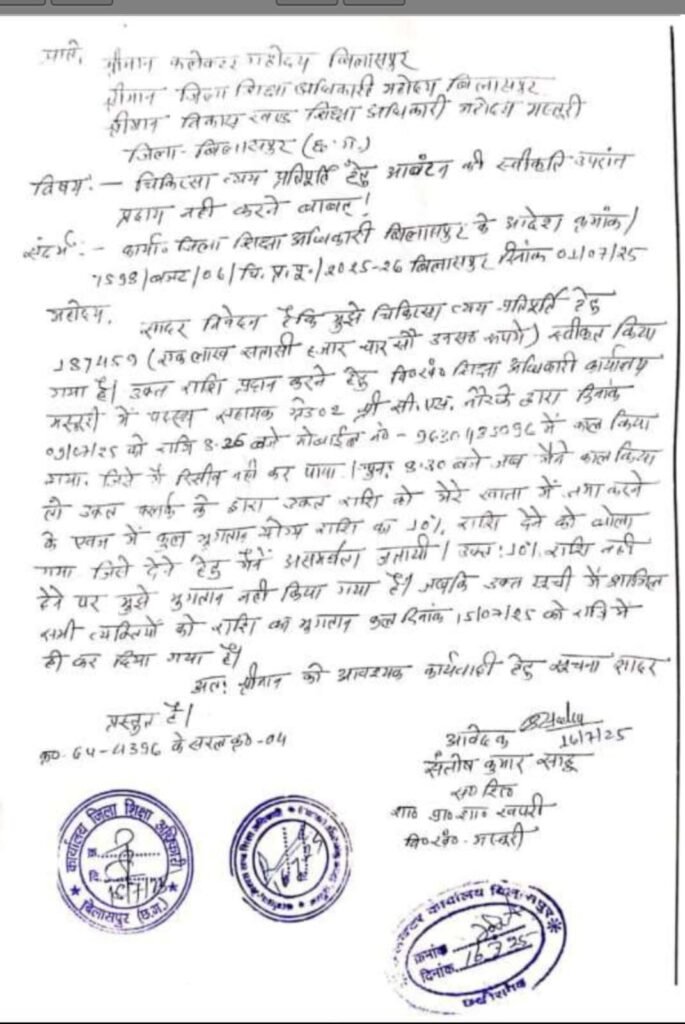 प्रति,
श्रीमान कलेक्टर महोदय बिलासपुर
श्रीमान जिला शिक्षा अधिकारी महोदय बिलासपुर
श्रीमान विकास खण्ड शिक्षा अधिकारी महोदय मस्तुरी
जिला- बिलासपुर (छ.ग.)
विषय:- चिकित्सा व्यय प्रतिपूर्ति हेतु आबंटन की स्वीकृति उपरांत
प्रदाय नही करने बाबत्!
संदर्भ:- कार्या. जिला शिक्षा अधिकारी बिलासपुर के आदेश क्रमांक/
7598/बजट/06/चि.प्र.पू./2025-26 बिलासपुर दिनांक 01/07/25
महोदय,
सादर निवेदन है कि मुझे चिकित्सा व्यय प्रतिपूर्ति हेतु
187459 (एक लाख सतासी हजार चार सौ उनसठ रूपये) स्वीकृत किया
गया है। उक्त राशि प्रदान करने हेतु वि०खं० शिक्षा अधिकारी कार्यालय
मस्तुरी में पदस्थ सहायक ग्रेड 02 श्री सी.एस. नौरके द्वारा दिनांक
को रात्रि 8:26 बजे मोबाईल नं० - में काल किया
गया, जिसे मैं रिसीव नही कर पाया। पुनः 8:30 बजे जब मैंने काल किया
तो उक्त क्लर्क के द्वारा उक्त राशि को मेरे खाता में जमा करने
के एवज में कुल भुगतान योग्य राशि का 10% राशि देने को बोला
गया जिसे देने हेतु मैंने असमर्थता जतायी। उक्त 10% राशि नही
देने पर मुझे भुगतान नही किया गया है। जबकि उक्त सूची में शामिल
सभी व्यक्तियों को राशि का भुगतान कल दिनांक 15/07/25 को रात्रि में
ही कर दिया गया है।
अतः श्रीमान को आवश्यक कार्यवाही हेतु सूचना सादर
प्रस्तुत है।
के सरल क्र०-04
16/7/25
आवेदक
संतोष कुमार साहू
स० शि०
शा० प्रा० शा० खपरी
वि०खं०- मस्तुरी
कार्यालय जिला शिक्षा अधिकारी
क्र.
दि. 16/7/25
बिलासपुर (छ.ग.)
कलेक्टर कार्यालय बिलासपुर
क्रमांक
दिनांक 16.7.25
छत्तीसगढ़